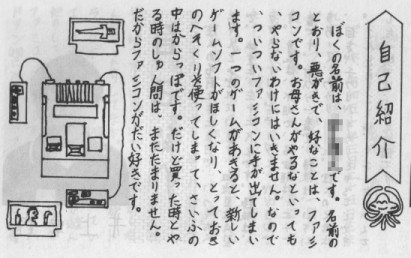 自己紹介
ぼくの名前は、です。名前の
とおり、悪がきで、好きなことは、ファミ
コンです。お母さんがやるなといっても
、やらないわけにはいきません。なので
、ついついファミコンに手が出てしまい
ます。一つのゲームがあきると、新しい
ゲームソフトがほしくなり、とっておき
のへそくりを使ってしまって、さいふの
中はからっぽです。だけど買った時とや
る時のしゅん間は、またたまりません。
だからファミコンがだい好きです。